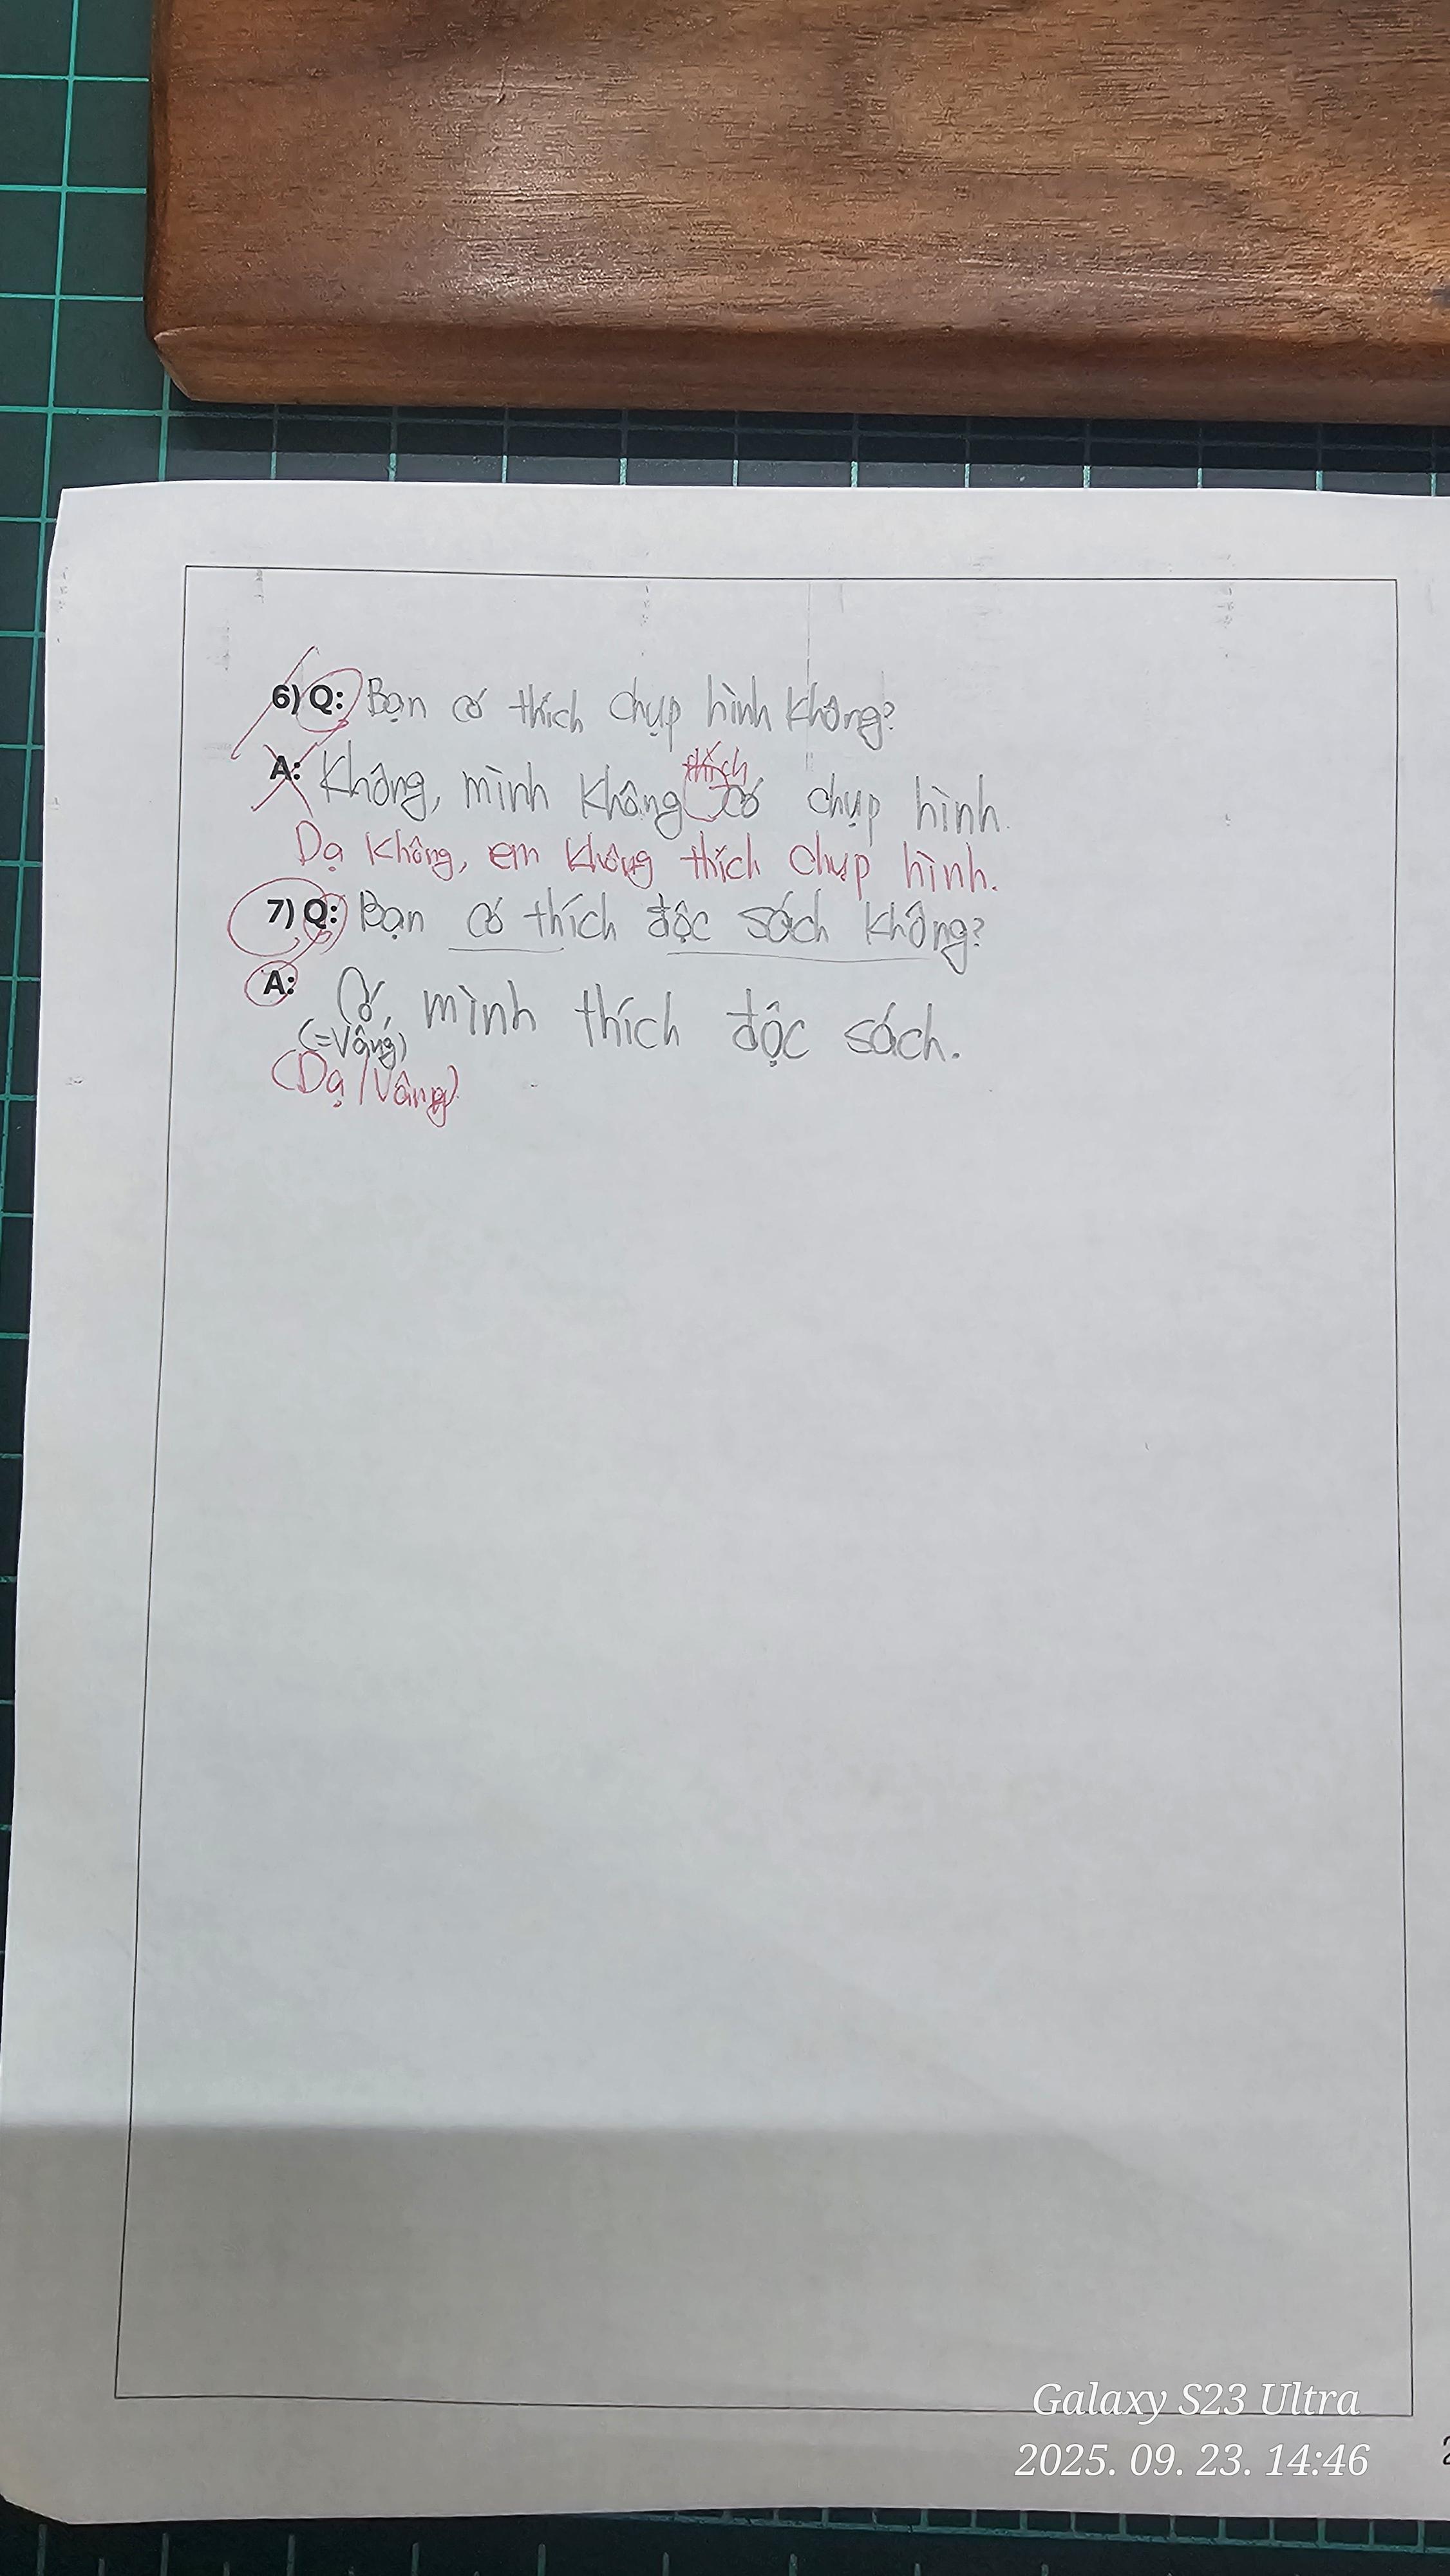 6) Q: Bạn có thích chụp hình không?
thích
A: Không, mình không có chụp hình.
Dạ không, em không thích chụp hình.
7) Q: Bạn có thích độc sách không?
A: Có, mình thích độc sách.
(=Vâng)
(Dạ/Vâng)
Galaxy S23 Ultra
2025. 09. 23. 14:46
2